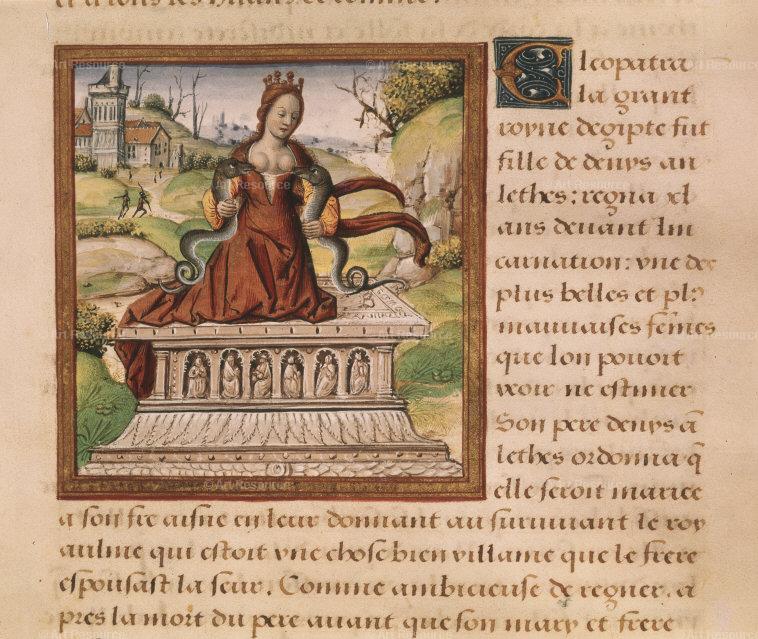 Cleopatra
la grant
royne degipte fut
fille de denys au
lethes: regna xl
ans deuant lin
carnation: vne des
plus belles et pl᷒
mauuaises fem̄es
que lon pouoit
veoir ne estimer
Son pere denys au
lethes ordonna q̄
elle seroit mariee
a son frē aisne en leur donnant au suruiuant le roy
aulme qui estoit vne chose bien villaine que le frere
espousast la seur. Comme ambicieuse de regner. a
pres la mort du pere auant que son mary et frere